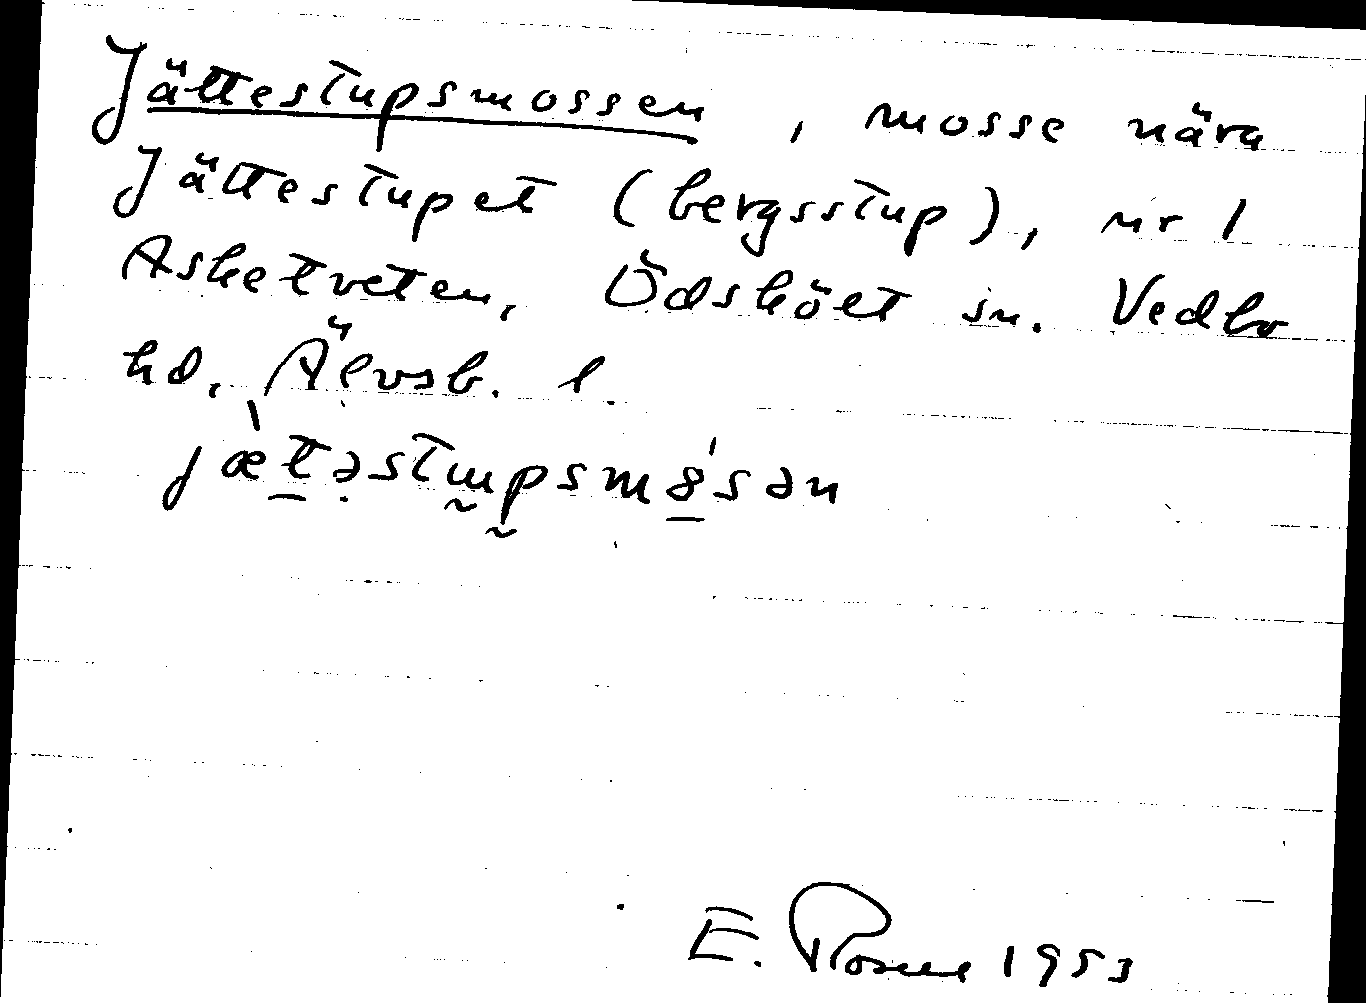 Jättestupsmossen, mosse nära
Jättestupet (bergsstup), nr 1
Asketveten, Ödsköet sn. Vedbo
hd. Älvsb. l.
jæ̀t̲ə̣stɯ̰p̰smȣ̲́sən
E. 1953